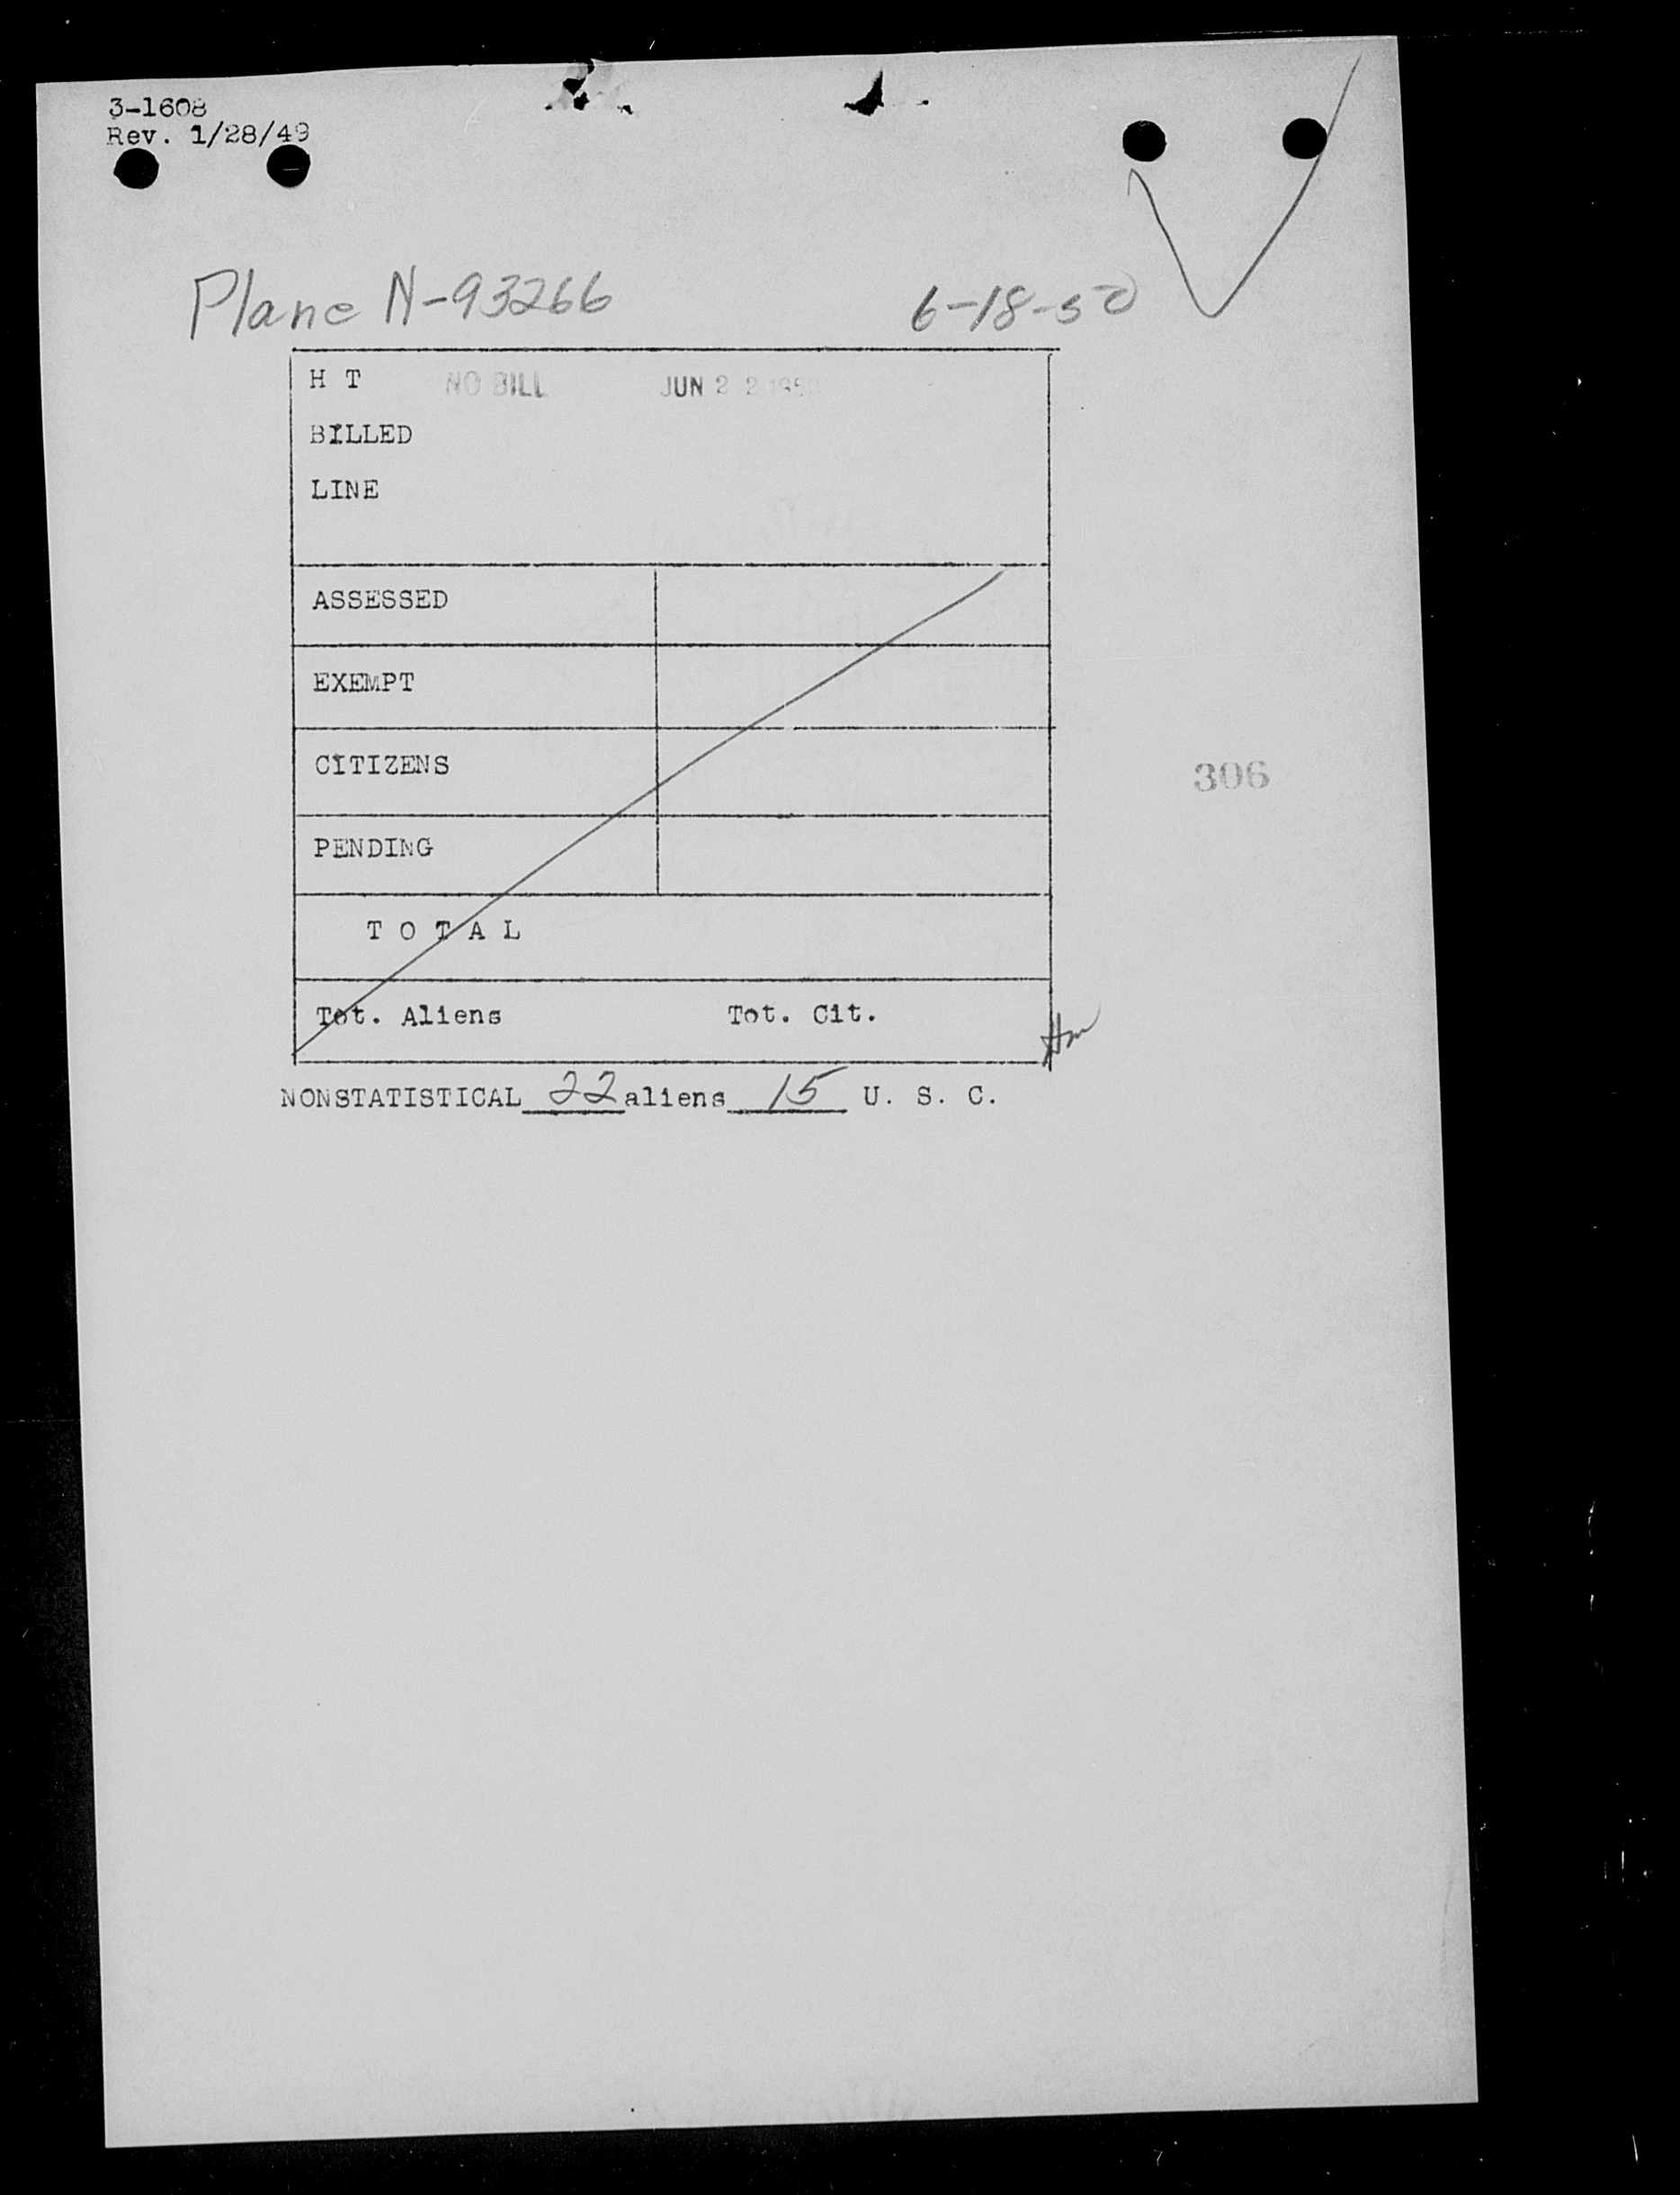 3-1608
Rev. 1/28/49
Plane N-93266 6-18-50
H T NO BILL JUN 22 1950
BILLED
LINE
ASSESSED
EXEMPT
CITIZENS
306
PENDING
T O T A L
Tot. Aliens Tot. Cit.
NONSTATISTICAL 22 aliens 15 U. S. C.